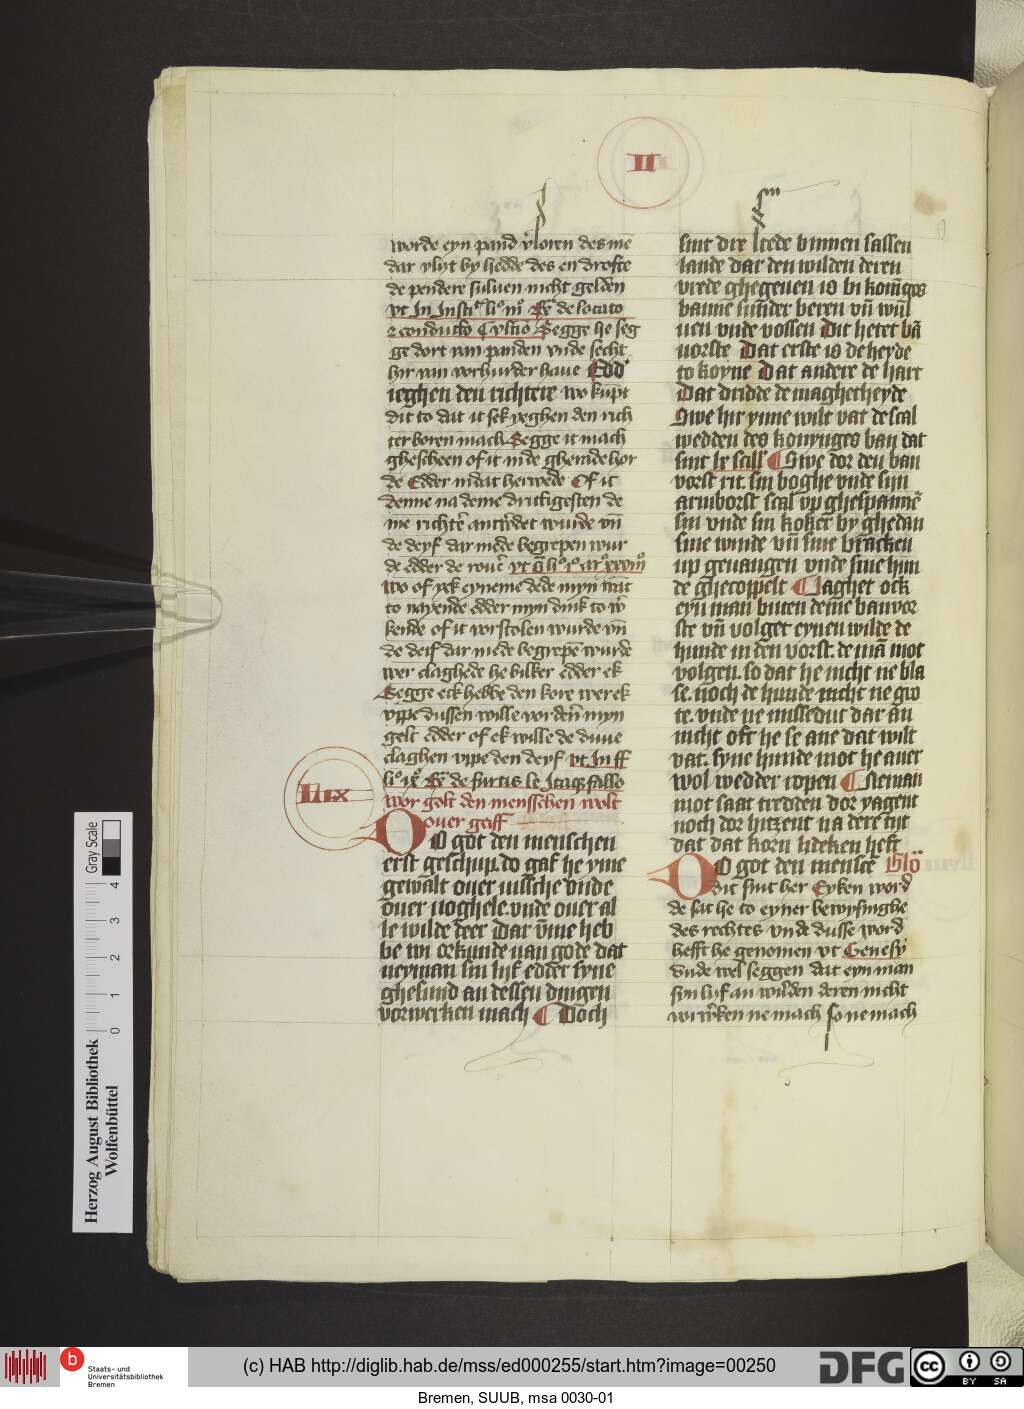 II
worde eyn pand v̓loren des me
dar vlyt by hedde des en drofte
de pendere suluen nicht gelden
vt In Insti
de locato
Segge he seg
ge dort van panden vnde secht
hir van vorhurder haue Edd'
ieghen den richtere wo kūpt
dit to dat it sek yeghen den rich
ter boren mach Segge it mach
ghescheen of it in de gherade hor
de Edder in dat herwede Of it
denne na deme drittigesten de
me richtē antw̓det wurde vn̄
de deyf dar mede begrepen wur
de edder de
wo of yck eyneme dede myn
to nayende edder myn dink to w̓
kende of it vorstolen wurde vn̄
de deif dar mede begrepē wurde
wer claghede he bilker edder ek
Segge eck hebbe den kore wer ek
vppe dussen wille vor den myn
gelt edder of ek wille de duue
claghen vppe den deyf vt In ff
de furtis
LIIX
wor golt den mensschen wolt
ouer gaff
DO got den menschen
erst geschup. do gaf he yme
gewalt ouer vissche vnde
ouer voghele. vnde ouer al
le wilde deer Dar v̄me heb
be wi orkunde van gode dat
nerman sin lyf edder syne
ghesund an dessen dingen
vorwerken mach Doch
sint dre stede binnen sassen
lande dar den wilden deren
vrede ghegeuen is bi konīges
banne sunder beren vn̄ wul
uen vnde vossen Dit hetet bā
vorste Dat erste is de heyde
to koyne Dat andere de hart
Dat dridde de maghetheyde
Swe hir ynne wilt vat de scal
wedden des konynges ban dat
sint lx scill Swe dor den ban
vorst rit. sin boghe vnde sin
armborst scal vp ghespannē
sin vnde sin koker by ghedan
sine winde vn̄ sine bracken
up geuangen vnde sine hun
de ghecoppelt Iaghet ock
eyn man buten deme banvor
ste vn̄ volget eynen wilde de
hunde in den vorst. de mā mot
volgen. so dat he nicht ne bla
se. noch de hunde nicht ne gro
te. vnde ne missedut dar an
nicht oft he se ane dat wilt
vat. syne hunde mot he auer
wol wedder ropen Neman
mot saat tredden dor yagent
noch dor hitzent na dere tijt
dat dat korn lideken heft
DO got den mensce Glo
dit sint her Eyken word
de sat he to eyner bewysinghe
des rechtes vnde dusse word
hefft he genomen vt Genesy
vnde wel seggen dat eyn man
syn lyf an wilden deren nicht
vorw̓ken ne mach so ne mach
Herzog August Bibliothek
Wolfenbüttel
Gray Scale
0 1 2 3 4
b
Staats- und
Universitätsbibliothek
Bremen
(c) HAB http://diglib.hab.de/mss/ed000255/start.htm?image=00250
DFG
cc
BY SA
Bremen, SUUB, msa 0030-01